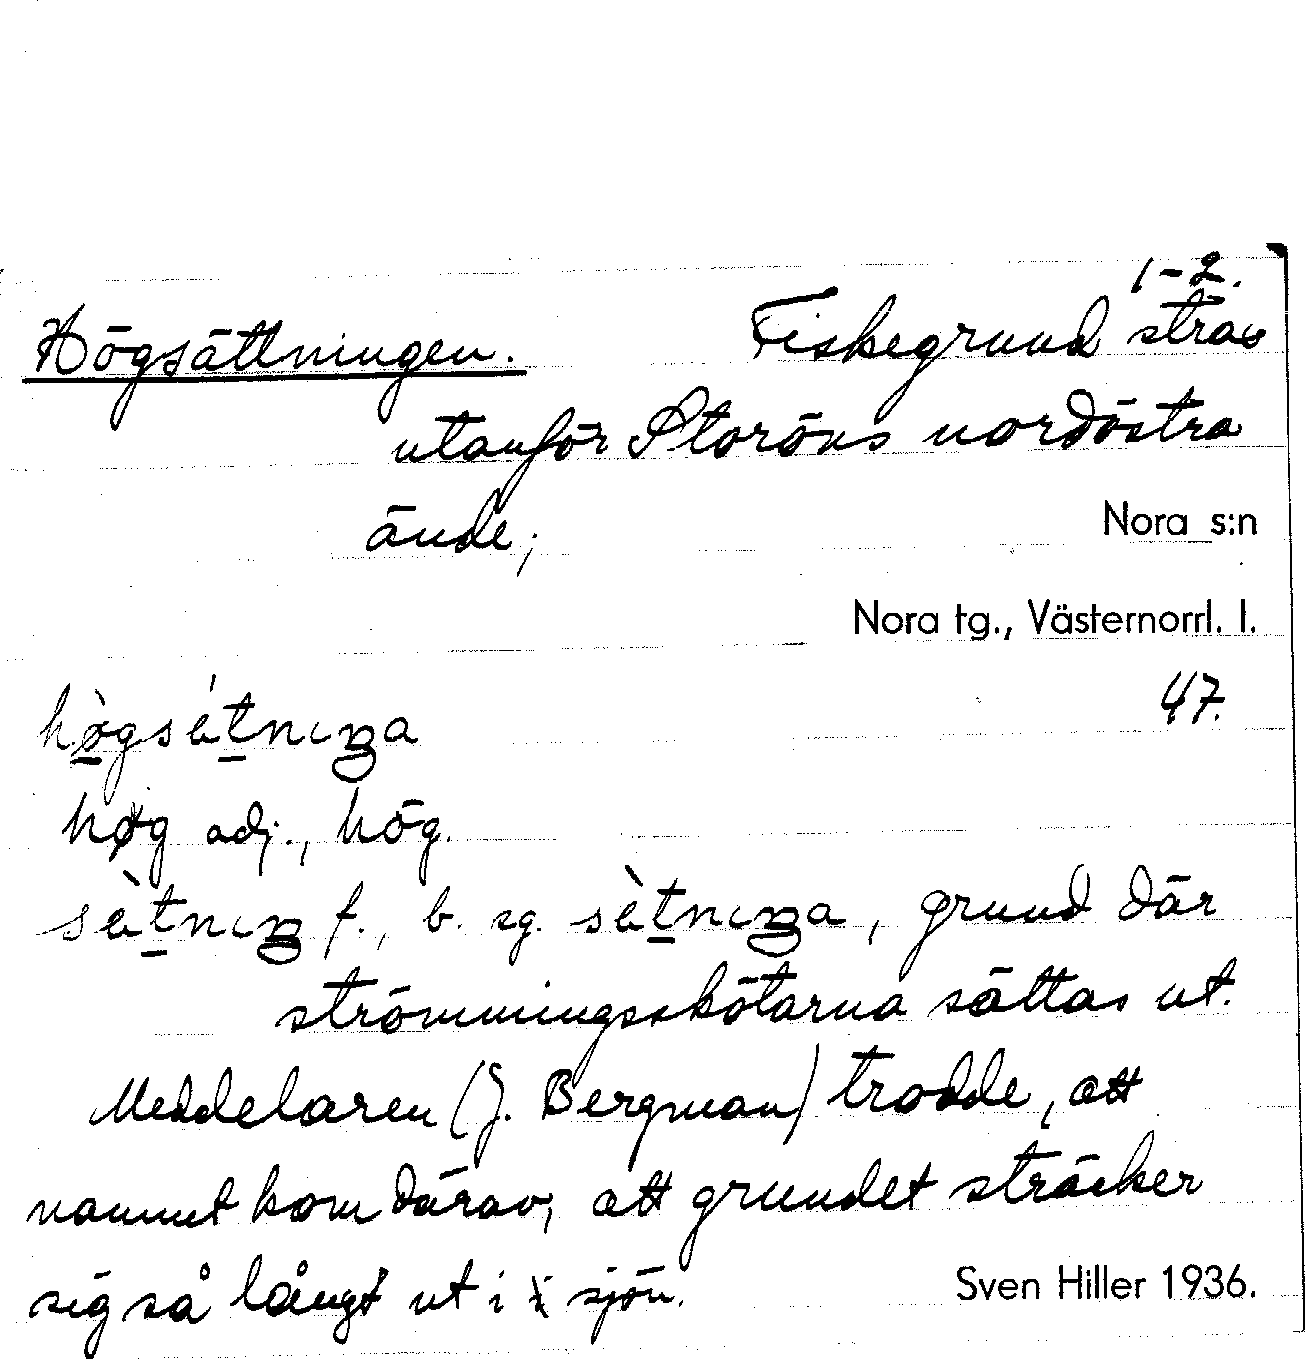 1-2.
Högsättningen. Fiskegrund strax
utanför Storöns nordöstra
ände;
Nora s:n
Nora tg., Västernorrl. l.
47.
hø̀gsètnıŋa
høg adj., hög.
sètnıŋ f., b. sg. sètnıŋa, grund där
strömmingsskötarna sättas ut.
Meddelaren (J. Bergman) trodde, att
namnet kom därav, att grundet sträcker
sig så långt ut i sjön.
Sven Hiller 1936.